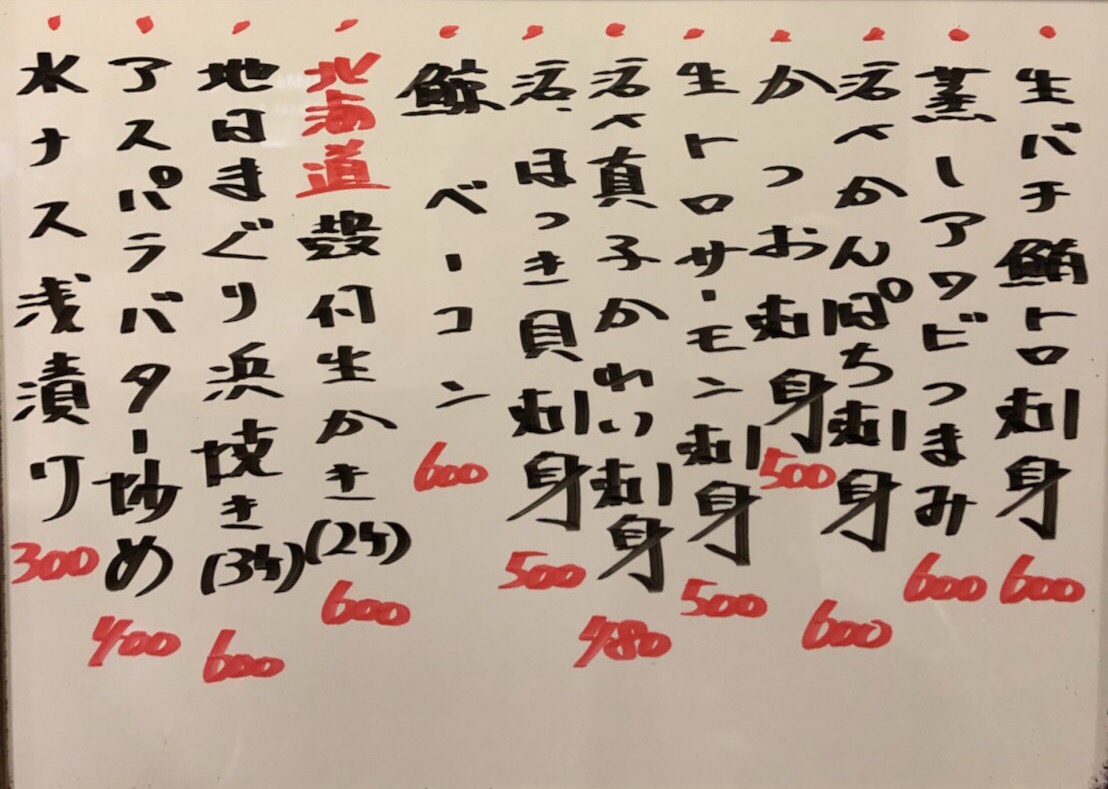 生バチ鮪トロ刺身 600
蒸しアワビつまみ 600
活〆かんぱち刺身 600
かつお刺身 500
生トロサーモン刺身 500
活〆真子かれい刺身 480
活、ほっき貝刺身 500
鯨ベーコン 600
北海道殻付生かき(2ケ) 600
地はまぐり浜焼き(3ケ) 600
アスパラバター炒め 400
水ナス浅漬り 300